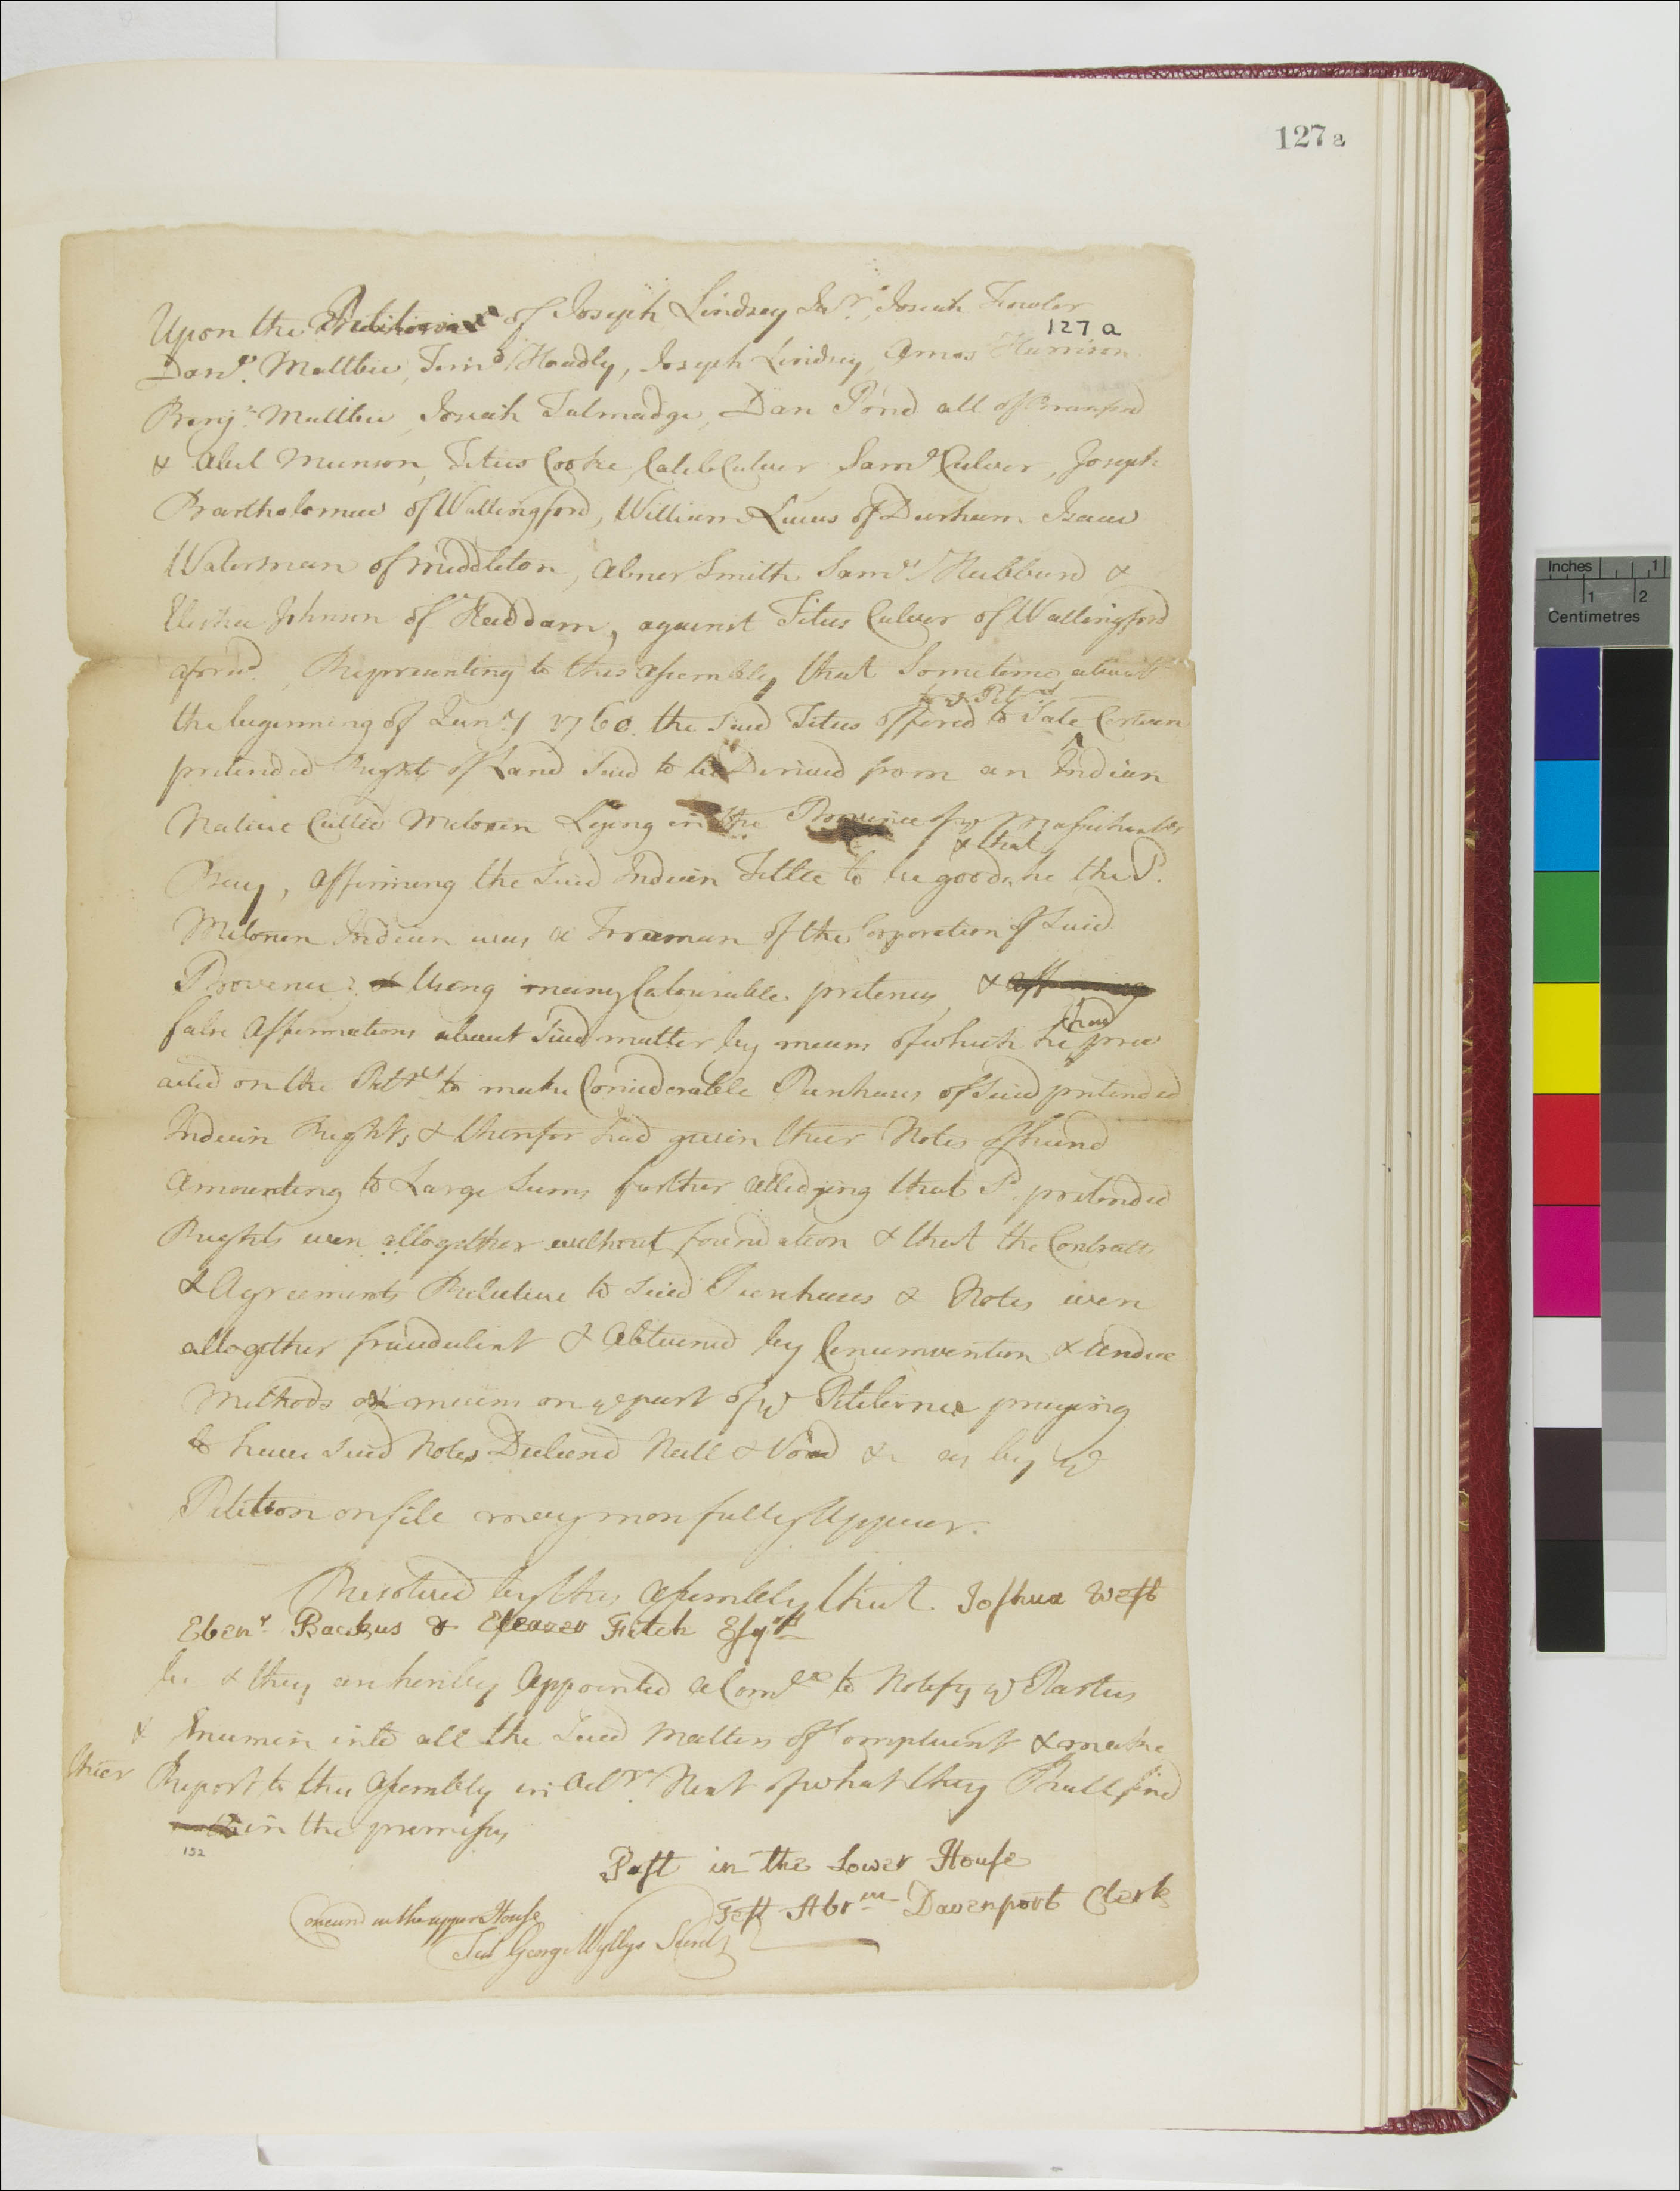 127a
Upon the Petition of Joseph Lindsey Junr. Josiah Fowler
127 a
Danl. Maltbie, Timo Hoadly, Joseph Lindsey, Amos Harrison
Benjn. Maltbie, Josiah Talmadge, Dan Pond all of Branford
& Abel Munson, Titus Cooke, Caleb Culver, Saml Culver, Joseph
Bartholomew of Wallingford, William Lucus of Durham Isaac
Waterman of middleton, Abner Smith Saml. Hubburd &
Elisha Johnson of Haddam, against Titus Culver of Wallingford
aforsd. Representing to this Assembly that Sometime about
to ye Petrs
the beginning of Janry 1760. the Said Titus offered to Sale Certain
pretended Rights of Land Said to be Derived from an Indian
Native Called Lying in the Province of ye Massachusetts
& that
Bay, Affirming the Said Indian Tittle to be good, he the Sd.
Indian was a Freeman of the Corporation of Said
Provence & Using many Colourable pretences, & affirming
had
false Affirmations about Said matter by means of which he prev
ailed on the Petrs to make Considerable Purchases of Said pretended
Indian Rights & therefor had given thier Notes of hand
Amounting to Large Sums further Alledging that Sd. pretended
Rights were allogather without foundation & that the Contracts
& Agreements Relative to Said Purchases & Notes were
allogether fraudulent & Obtained by Cercumvention & undue
Methods & means on ye part of ye Petitioner praying
to have Said Notes Declared Null & Void &c as by ye
Petition on file may more fully Appear.
Resolved by this Assembly that Joshua West
Ebenr. Backus & Eleazer Fitch Esqrs
be & they are hereby Appointed a Comtee to Notify ye Parties
& Enumin into all the Said Matters of Complaint & make
thier Report to this Assembly in Octr. Next of what they Shall find
in the premises
152
Past in the Lower House
Test Abrm Davenport Clerk
Concurd in the upper House
Test George Wyllys Secrety
Inches 1
1 2
Centimetres